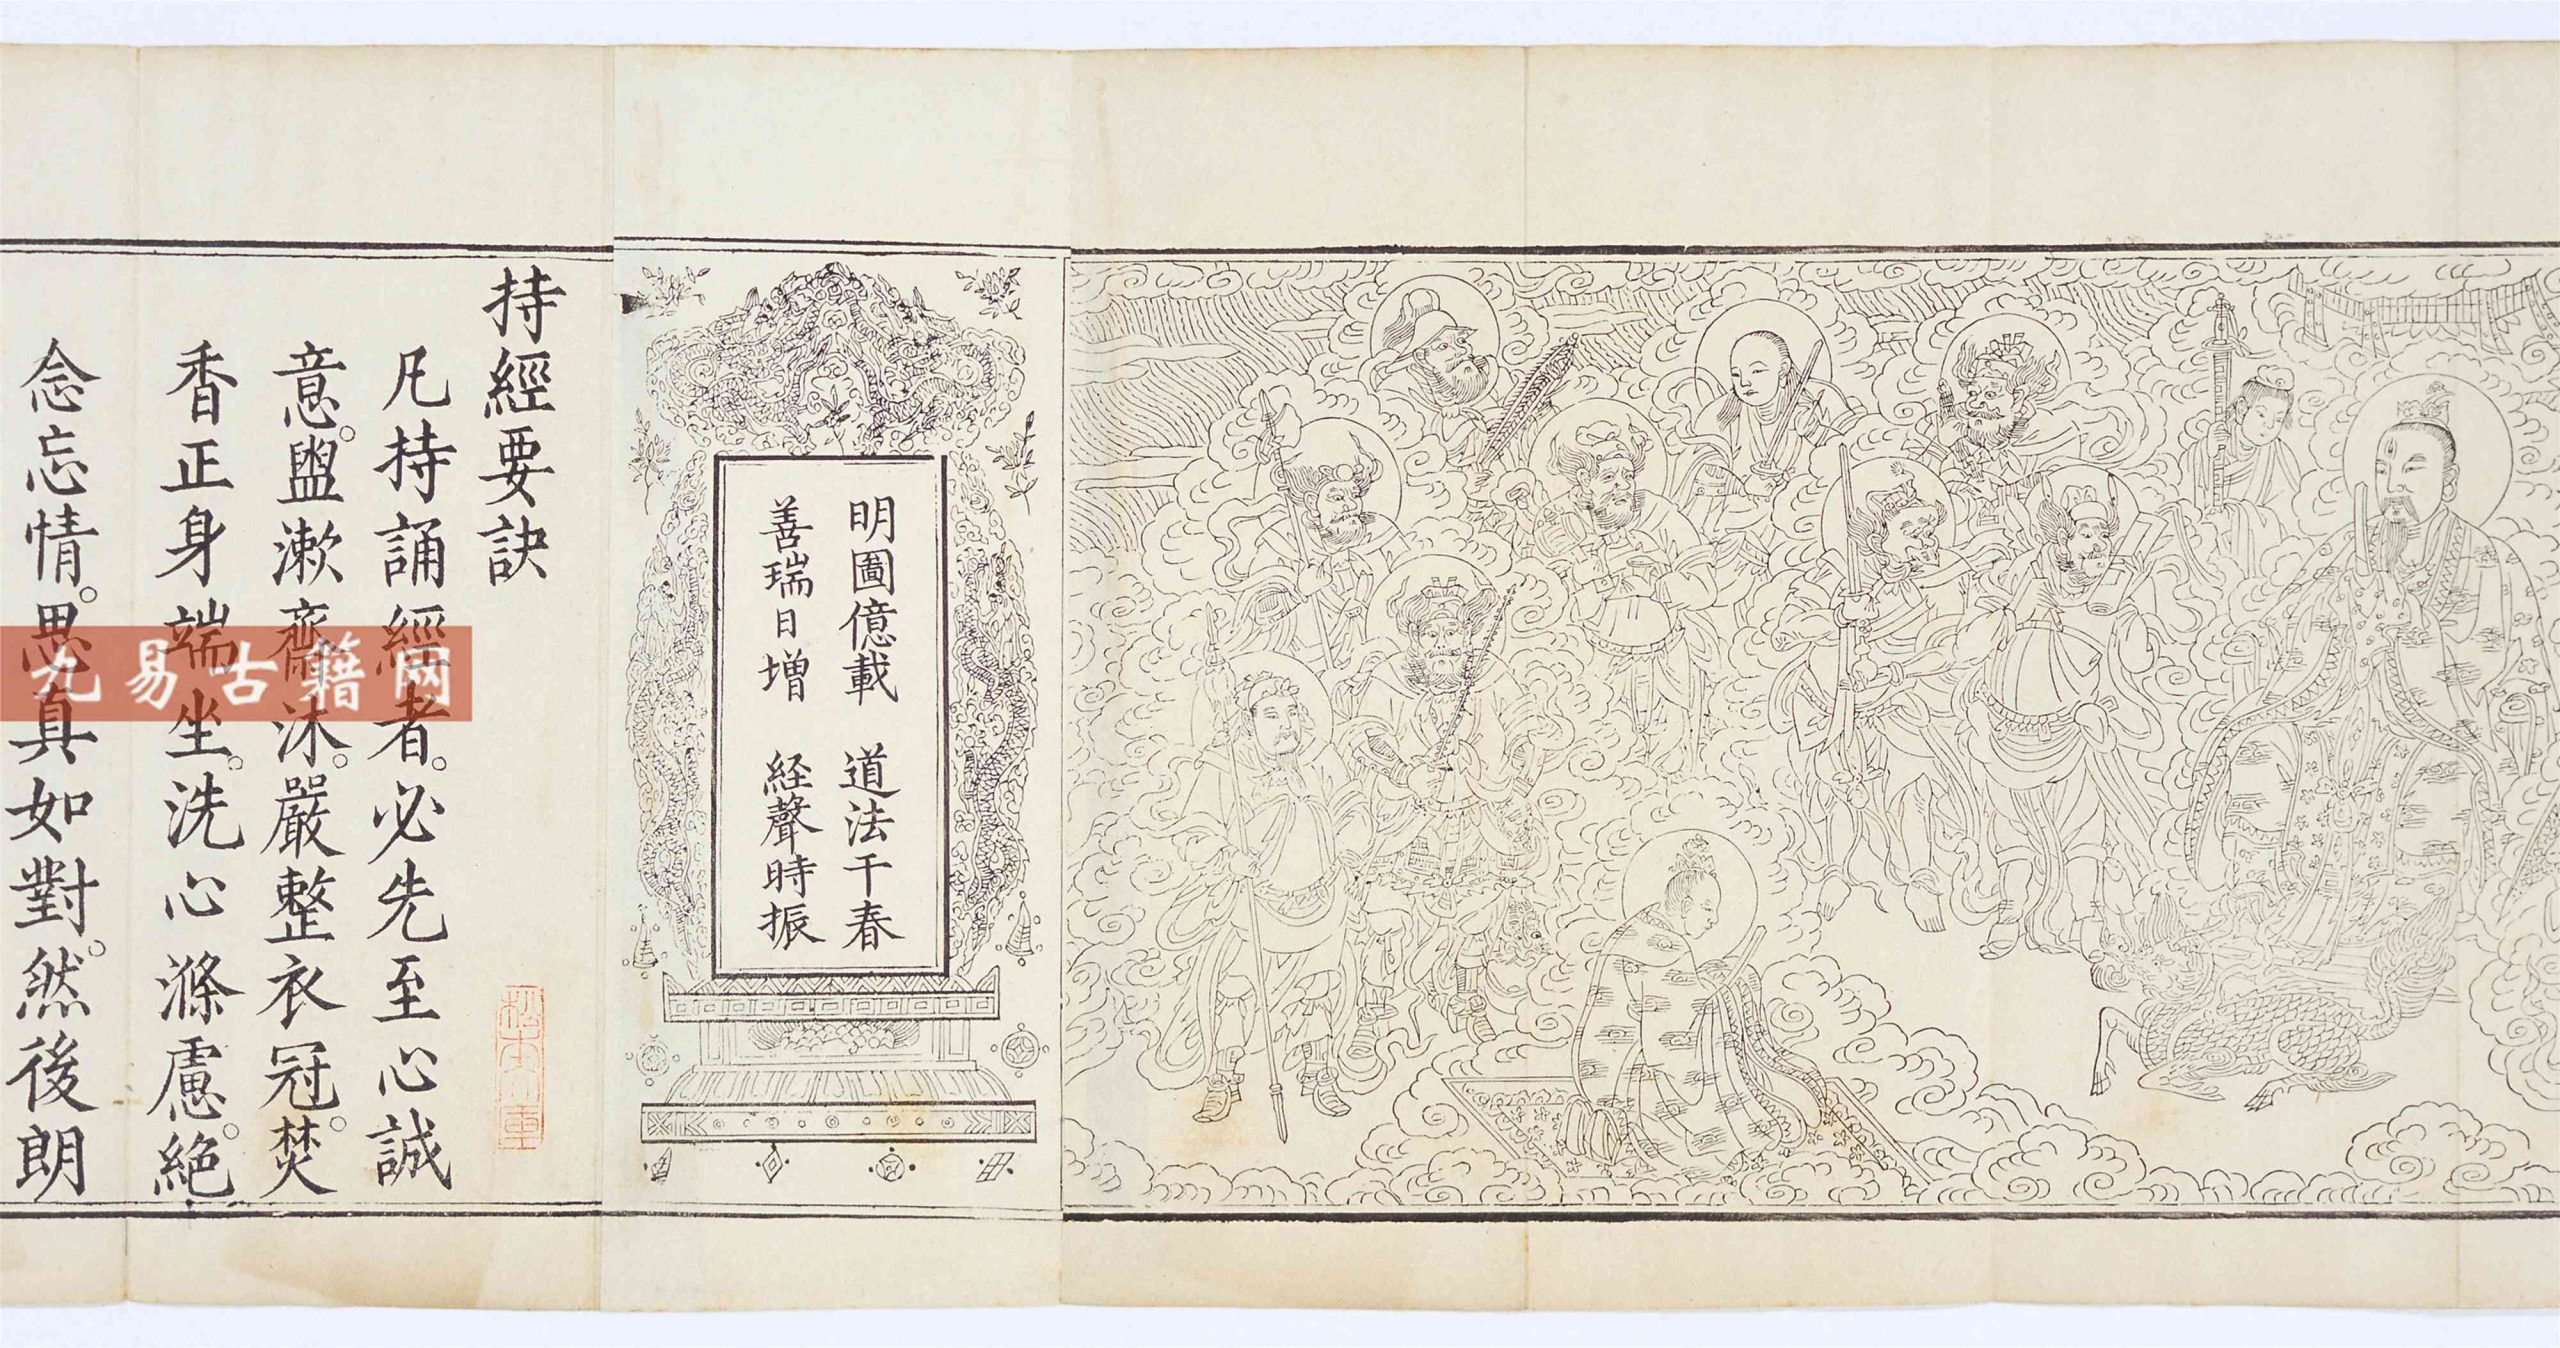 明圖億載 道法千春
善瑞日增 経聲時振
持經要訣
凡持誦經者。必先至心誠
意。盥漱齋沐。嚴整衣冠。焚
香正身端坐。洗心滌慮。絕
念忘情。思真如對。然後朗
九易古籍网